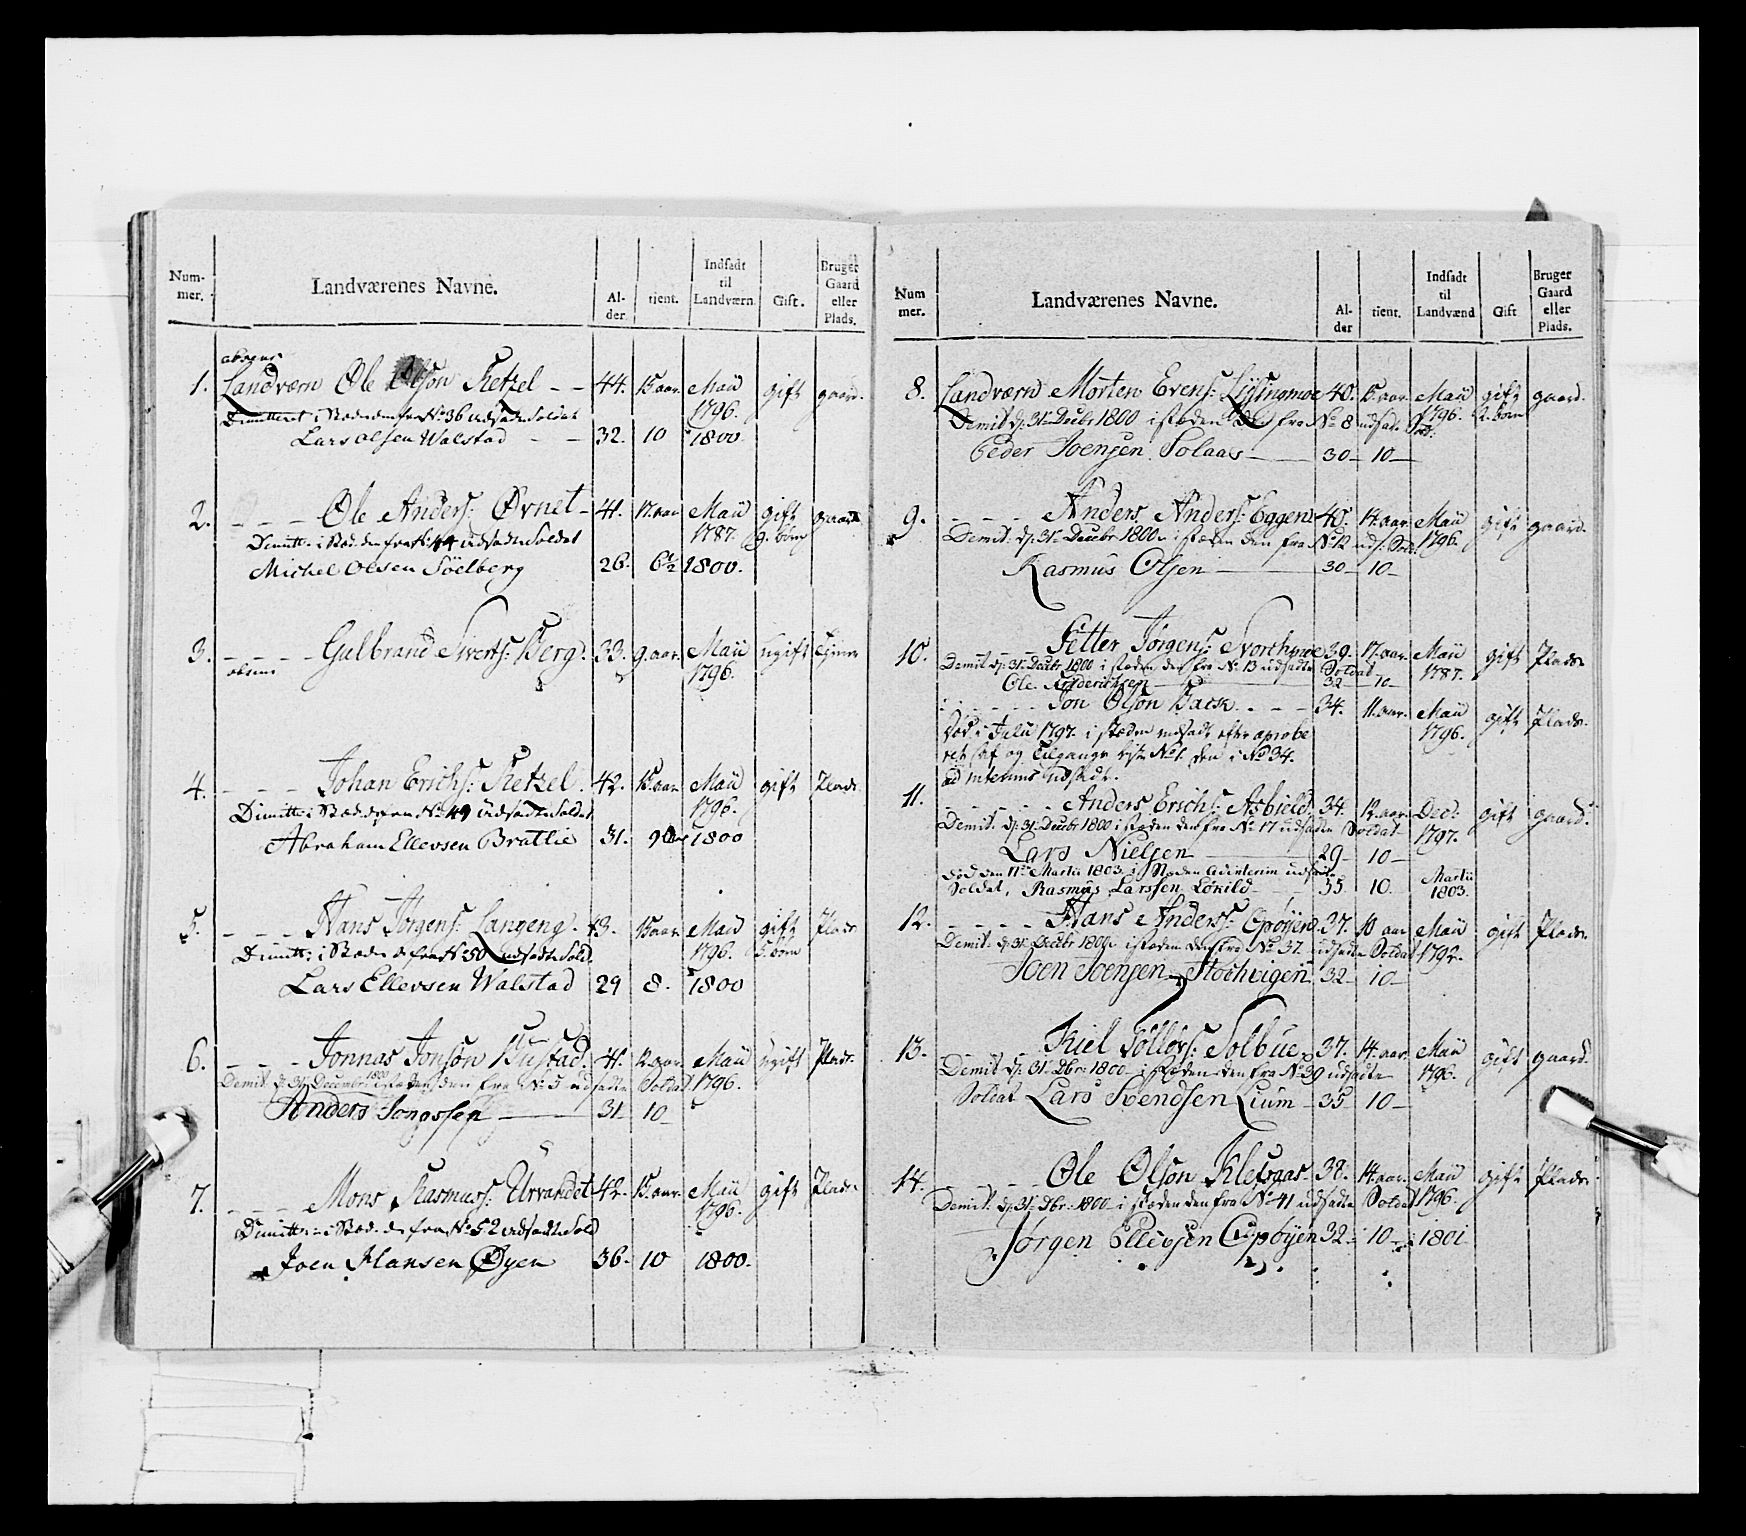 Num-
mer.
Landværenes Navne.
Al-
der.
tient.
Indsadt
til
Landværn.
Gift.
Bruger
Gaard
eller
Plads.
absent
1. Landværn Ole Olson Ketzel - - 44. 15 aar. Maii 1796. gift gaard.
Dimitteret i Stæden fra No 36 udsadte Soldat
Lars Olsen Walstad - - 32. 10 1800.
2. - - - Ole Anders: Øvnet - 41. 17 aar Maii 1787. gift 9. børn gaard
Dimitt: i Stæd. den fra No 44 udsadte Soldat
Michel Olsen Söelberg 26. 6½ 1800.
3. - - - - Gulbrand Siverts: Berg. 33. 9. aar. Maii 1796. ugift
absent
4. - - - Johan Erichs: Ketzel. 42. 15. aar. Maii 1796. gift Plads
Dimitt: i Stæd. d. fra No 49 udsadte Soldat
Abraham Ellevsen Brattlie 31. 9 1800
5. - - - Hans Jörgens: Langeng. 43. 15 aar. Maii 1796. gift 5. børn Plads
Dimitt: i Stæd. d. fra No 50 udsadte Sold.
Lars Ellevsen Walstad 29 8. 1800
6. - - - Jonnas Jonson Bustad. 41. 12. aar. Maii 1796. ugift Plads.
Demit. d. 31. Decembr 1800 i stæden den fra No 5 udsadte Soldat
Anders Jonossen 31 10
7. - - - Mons Rasmus: Urvandet 42. 15. aar. Maii 1796. gift Plads.
Dimitt: i Stæd. d. fra No 52 udsadte Sold
Joen Hansen Øyen 36. 10 1800.
Num
mer.
Landværenes Navne.
Al-
der
tient.
Indsadt
til
Landvænd
Gift
Bruger
Gaard
eller
Plads.
8. Landværn Morten Evens: 40. 15 aar. Maii 1796. gift 2. børn gaard.
Demit d. 31 Decbr 1800 i stæden den fra No 8 udsat. Sold:
Peder Joensen Solaas 30 - 10 -
9. - - - Anders Anders: Eggen 40. 14. aar. Maii 1796. gift gaard.
Demit. d. 31. Decbr 1800 i stæden den fra No 12 uds. Sold.
Rasmus Olsen 30 - 10 -
10. - - - Petter Jörgens: 39. 17. aar. Maii 1787. gift Plads
Demit d. 31 Decbr 1800 i stæden den fra No 13 udsadte Soldat
Ole Friderichsen 32 10 -
- - - Jon Olson Bæck - - - 34. 11. aar. Maii 1796. gift Plads.
Död i Julii 1797. i stæden indsadt efter aprobe
ret Af og Tilgangs Liste No 1. den i No 34.
ad interims udsadt.
11. - - - Anders Erichs: Asbield 34. 12. aar. Decbr 1797. gift gaard.
Demit. d. 31. Decbr 1800 i stæden den fra No 17 udsadte Soldat
Lars Nielsen 29 - 10 -
död den 11te Martii 1803. i Stæden ad interim udsadt
Soldat, Rasmus Larssen Lökild 35 10. Martii 1803.
12. - - - Hans Anders: Opöyen 37. 10 aar Maii 1792. gift Plads.
Demit. d. 31. Decbr 1800 i stæden den fra No 37. udsadte Soldat
Joen Joensen Stochvigen 32 - 10 -
13. Kiel Tollevs: Solbue 37. 14. aar. Maii 1796. gift gaard.
Demit d. 31. Dbr. 1800 i stæden den fra No 39 udsadte
Soldat Lars Svendsen Lium - 35 10 -
14. - - - Ole Olson Klefsaas 38. 14. aar. Maii 1796. gift Plads.
Demit. d. 31. Dbr. 1800 - i stæden den fra No 41 udsadte Soldat
Jörgen Ellevsen Opöyen 32 - 10 - 1801